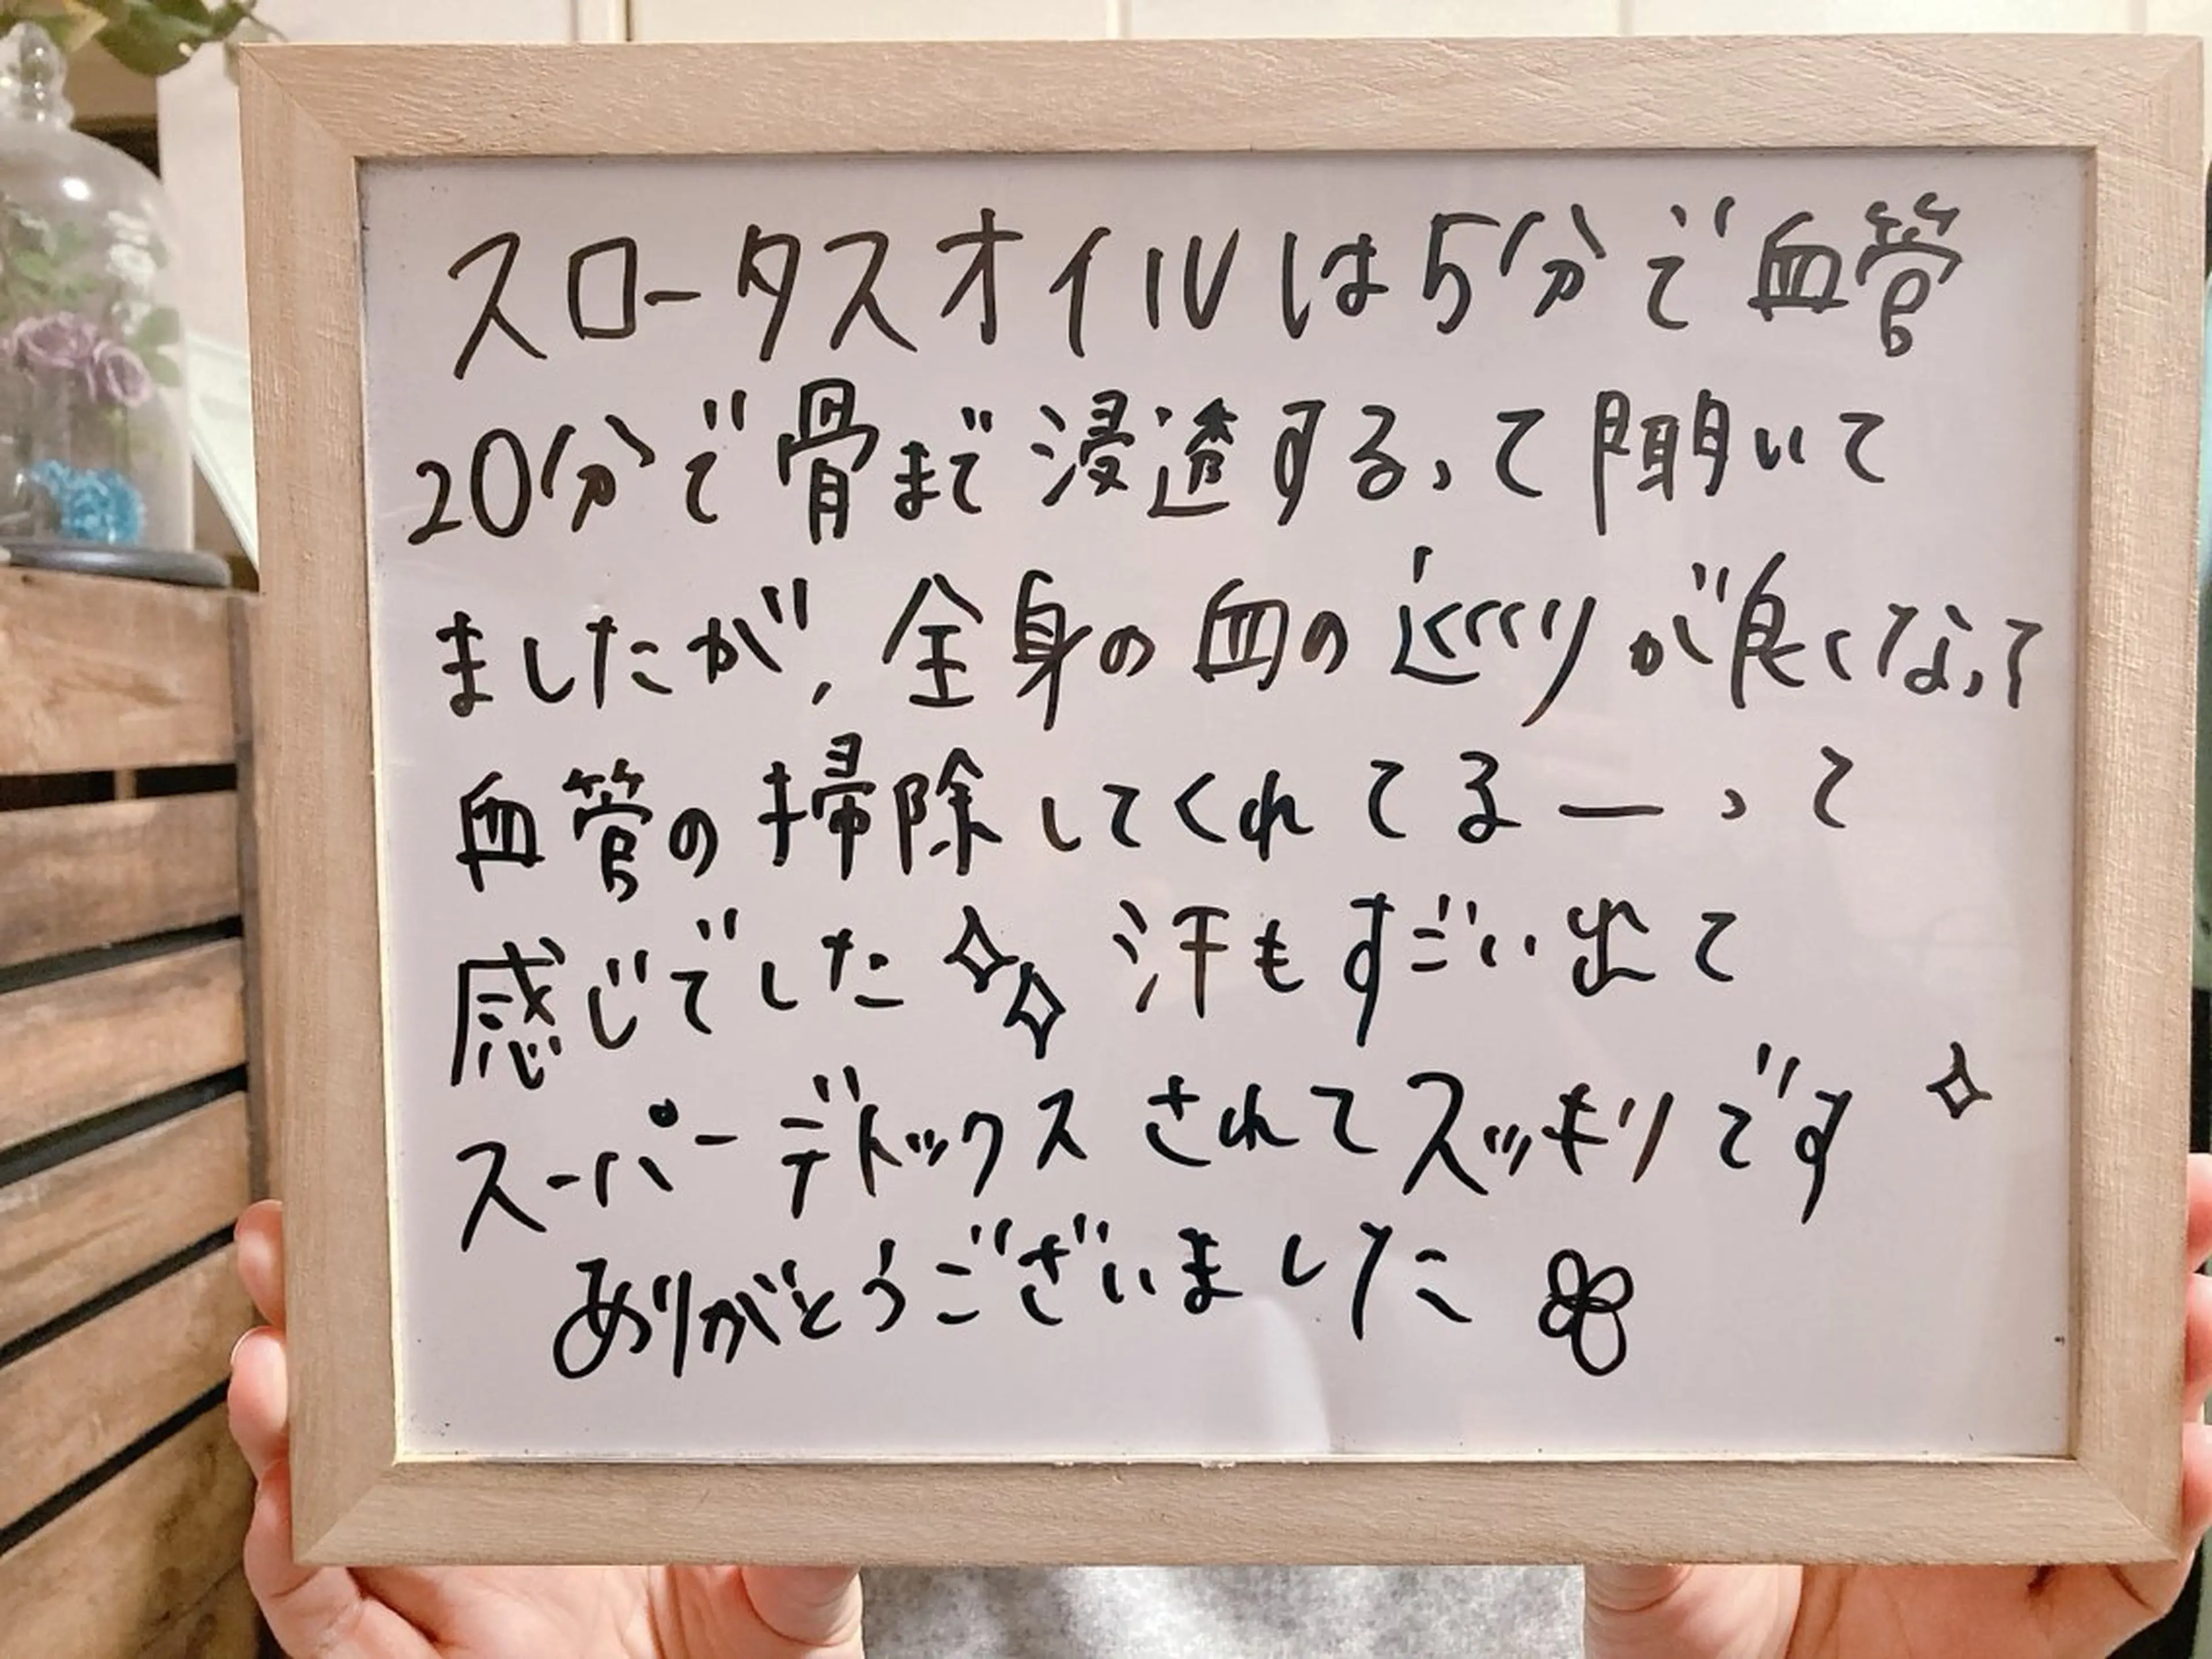 スロータスオイルは5分で血管
20分で骨まで浸透する、って聞いて
ましたが、全身の血の巡りが良くなって
血管の掃除してくれてるーって
感じでした✧✧ 汗もすごい出て
スーパーデトックスされてスッキリです✧
ありがとうございました